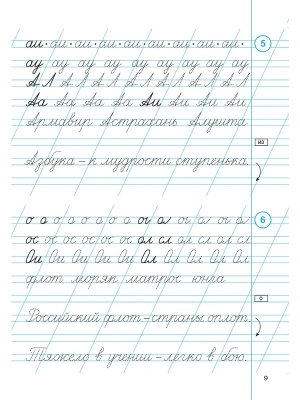 аи·аи·аи·аи·аи·аи·аи·аи·аи·
5
ау ау ау ау ау ау ау ау ау
А Л А Л А Л А Л А Л А Л А Л
Аа Аа Аа Аа Аи Аи Аи Аи
Армавир Астрахань Алушта
из
Азбука – к мудрости ступенька.
6
о о о о о о о ог о о ог о ог
ос ос ос ос ос ос ол сл ол сл ол сл
Ои Ои Ои Ои Ои Ол Ол Ол Ол Ол
флот моряк матрос юнга
о
Российский флот – страны оплот.
Тяжело в учении – легко в бою.
9